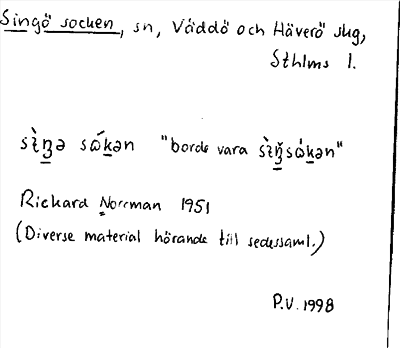 Singö socken, sn, Väddö och Häverö skg,
Sthlms l.
sìŋə sɷ́kən "borde vara sìŋ̆sɷ̀kən"
Rickard Norrman 1951
(Diverse material hörande till sedessaml.)
P.V. 1998